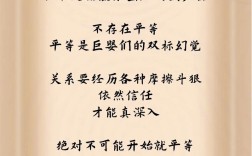 不存在平等
平等是巨婴们的双标幻觉
关系要经历各种摩擦斗狠
依然信任
才能真深入
绝对不可能开始就平等